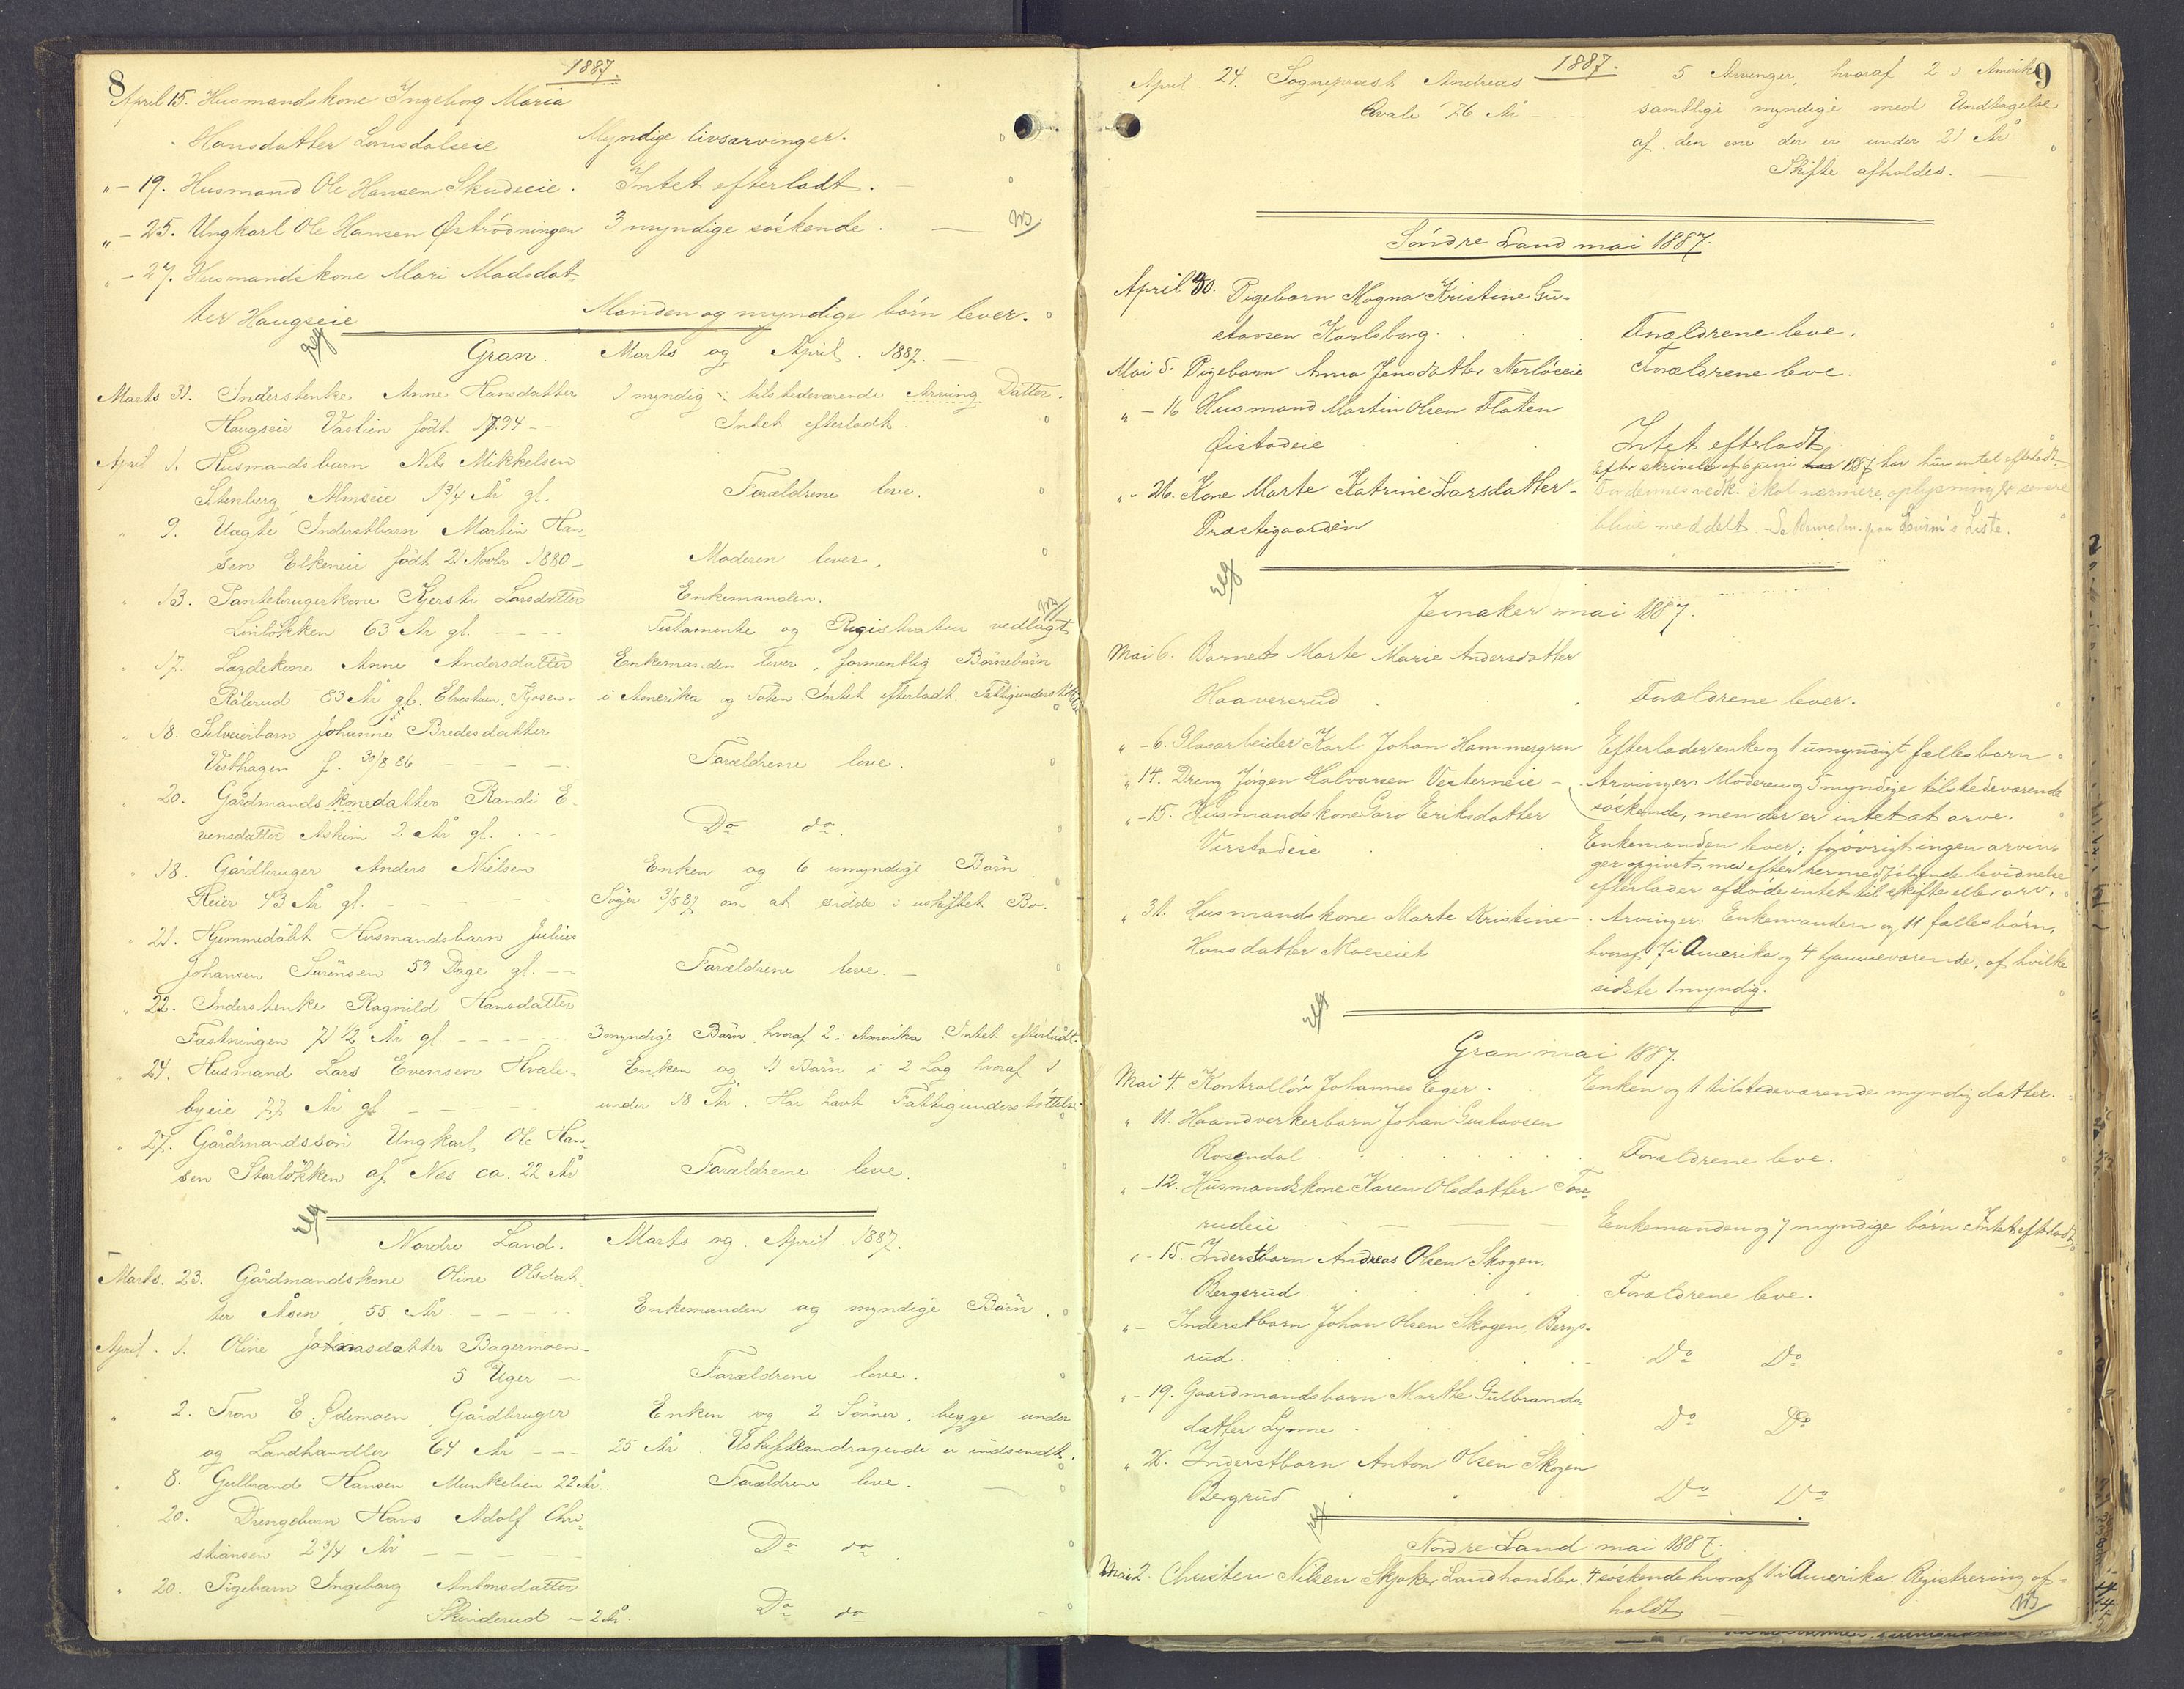 8
1887.
April 15. Husmandskone Ingeborg Maria
Hansdatter Lønsdalseie Myndige livsarvinger.
" - 19. Husmand Ole Hansen Skudeeie. Intet efterladt.
" - 25. Ungkarl Ole Hansen Østrødningen 3 myndige søskende. NB.
" - 27. Husmandskone Mari Madsdat-
ter Haugseie Manden og myndige børn lever.
Gran. Marts og April. 1887.
Marts 31. Inderstenke Anne Hansdatter 1 myndig tilstedeværende Arving Datter.
Haugseie Vaslien født 1794 Intet efterladt.
April 1. Husmandsbarn Nils Mikkelsen
Stenberg Almseie 1 3/4 År gl. Forældrene leve.
" 9. Uægte Inderstbarn Martin Han-
sen Elkeneie født 21 Novbr 1880 Moderen lever.
" 13. Pantebrugerkone Kjersti Larsdatter Enkemanden.
Linløkken 63 År gl. Testamente og Registratur vedlagt NB
" 17. Lægdekone Anne Andersdatter Enkemanden lever, formentlig Børnebørn
Rålerud 83 År gl. i Amerika og Toten. Intet efterladt. Fattigunderstøttelse
" 18. Selveierbarn Johanne Bredesdatter
Visthagen f. 30/8 86 Forældrene leve.
" 20. Gårdmandskonedatter Randi E-
vensdatter Askim 2 År gl. Do do.
" 18. Gårdbruger Anders Nielsen Enken og 6 umyndige Børn.
Reier 43 År gl. Søger 3/5 87 om at sidde i uskiftet Bo.
" 21. Hjemmedøbt Husmandsbarn Julius
Johansen Sørensen 59 Dage gl. Forældrene leve.
" 22. Inderstenke Ragnild Hansdatter
Fæstningen 71 1/2 År gl. 3 myndige Børn hvoraf 2 i Amerika. Intet efterladt.
" 24. Husmand Lars Evensen Hvale- Enken og 11 Børn i 2 Lag hvoraf 1
byeie 77 År gl. under 18 År. Har havt Fattigunderstøttelse.
" 27. Gårdmandssøn Ungkarl Ole Han-
sen Starløkken af Næs ca. 22 År Forældrene leve.
Nordre Land. Marts og April 1887.
Marts. 23. Gårdmandskone Oline Olsdat-
ter Åsen 55 År. Enkemanden og myndige Børn.
April. 1. Oline Johnasdatter Bagermoen
5 Uger Forældrene leve.
" 2. Tron E. Ødemoen Gårdbruger Enken og 2 Sønner, begge under
og Landhandler 64 År 25 År Uskifteandragende er indsendt.
" 8. Gulbrand Hansen Munkelien 22 År. Forældrene leve.
20. Drengebarn Hans Adolf Chri-
stiansen 2 3/4 År Do do.
" 20. Pigebarn Ingeborg Antonsdatter
Skinderud - 2 År. Do do
9
1887.
April 24. Sogneprest Andreas 5 Arvinger, hvoraf 2 i Amerika
Qvale 76 År samtlige myndige med Undtagelse
af den ene der er under 21 År.
Skifte afholdes.
Søndre Land mai 1887.
April 30. Pigebarn Magna Kristine Gu-
stavsen Karlsberg. Forældrene leve.
Mai 5. Pigebarn Anna Jensdatter Nerløseie Forældrene leve.
" - 16 Husmand Martin Olsen Flaten
Øistadeie Intet efterladt
Efter skrivelse af 6 juni 1887 har hun intet efterladt.
" - 26. Kone Marte Katrine Larsdatter - For dennes vedk. skal nærmere oplysninger senere
Præstegaarden blive meddelt. paa Liste.
Jevnaker mai 1887.
Mai 6. Barnet Marte Marie Andersdatter
Haaversrud Forældrene lever.
" - 6. Glasarbeider Karl Johan Hammergren Efterlader enke og 1 umyndigt fællesbarn
" 14. Dreng Jørgen Halvorsen Vesterneie - Arvinger: Moderen og 5 myndige tilstedeværende
søskende, men der er intet at arve.
" - 15. Husmandskone Goro Eriksdatter
Virstadeie Enkemanden lever; forøvrigt ingen arvin-
ger opgivet, med efter hermed følgende bevidnelse
efterlader afdøde intet til skifte eller arv.
" 31. Husmandskone Marte Kristine - Arvinger: Enkemanden og 11 fælles børn,
Hansdatter Moeseiet hvoraf 7 i Amerika og 4 hjemmeværende, af hvilke
sidste 1 myndig.
Gran mai 1887.
Mai 4. Kontrollør Johannes Eger. Enken og 1 tilstedeværende myndig datter.
" 11. Haandverkerbarn Johan Gustavsen
Rosendal Forældrene leve.
" - 12. Husmandskone Karen Olsdatter Tore-
rudeie Enkemanden og 7 myndige børn. Intet efterladt
" - 15. Inderstbarn Andreas Olsen Skogen
Bergsrud Forældrene leve.
" - Inderstbarn Johan Olsen Skogen, Bergs-
rud. Do Do
" - 19. Gaardmandsbarn Marthe Gulbrands-
datter Lynne Do Do
" 26. Inderstbarn Anton Olsen Skogen
Bergrud Do Do
Nordre Land mai 1887.
Mai 2. Christen Nilsen Skjaker Landhandler 4 søskende hvoraf 1 i Amerika. Registrering af-
holdt NB